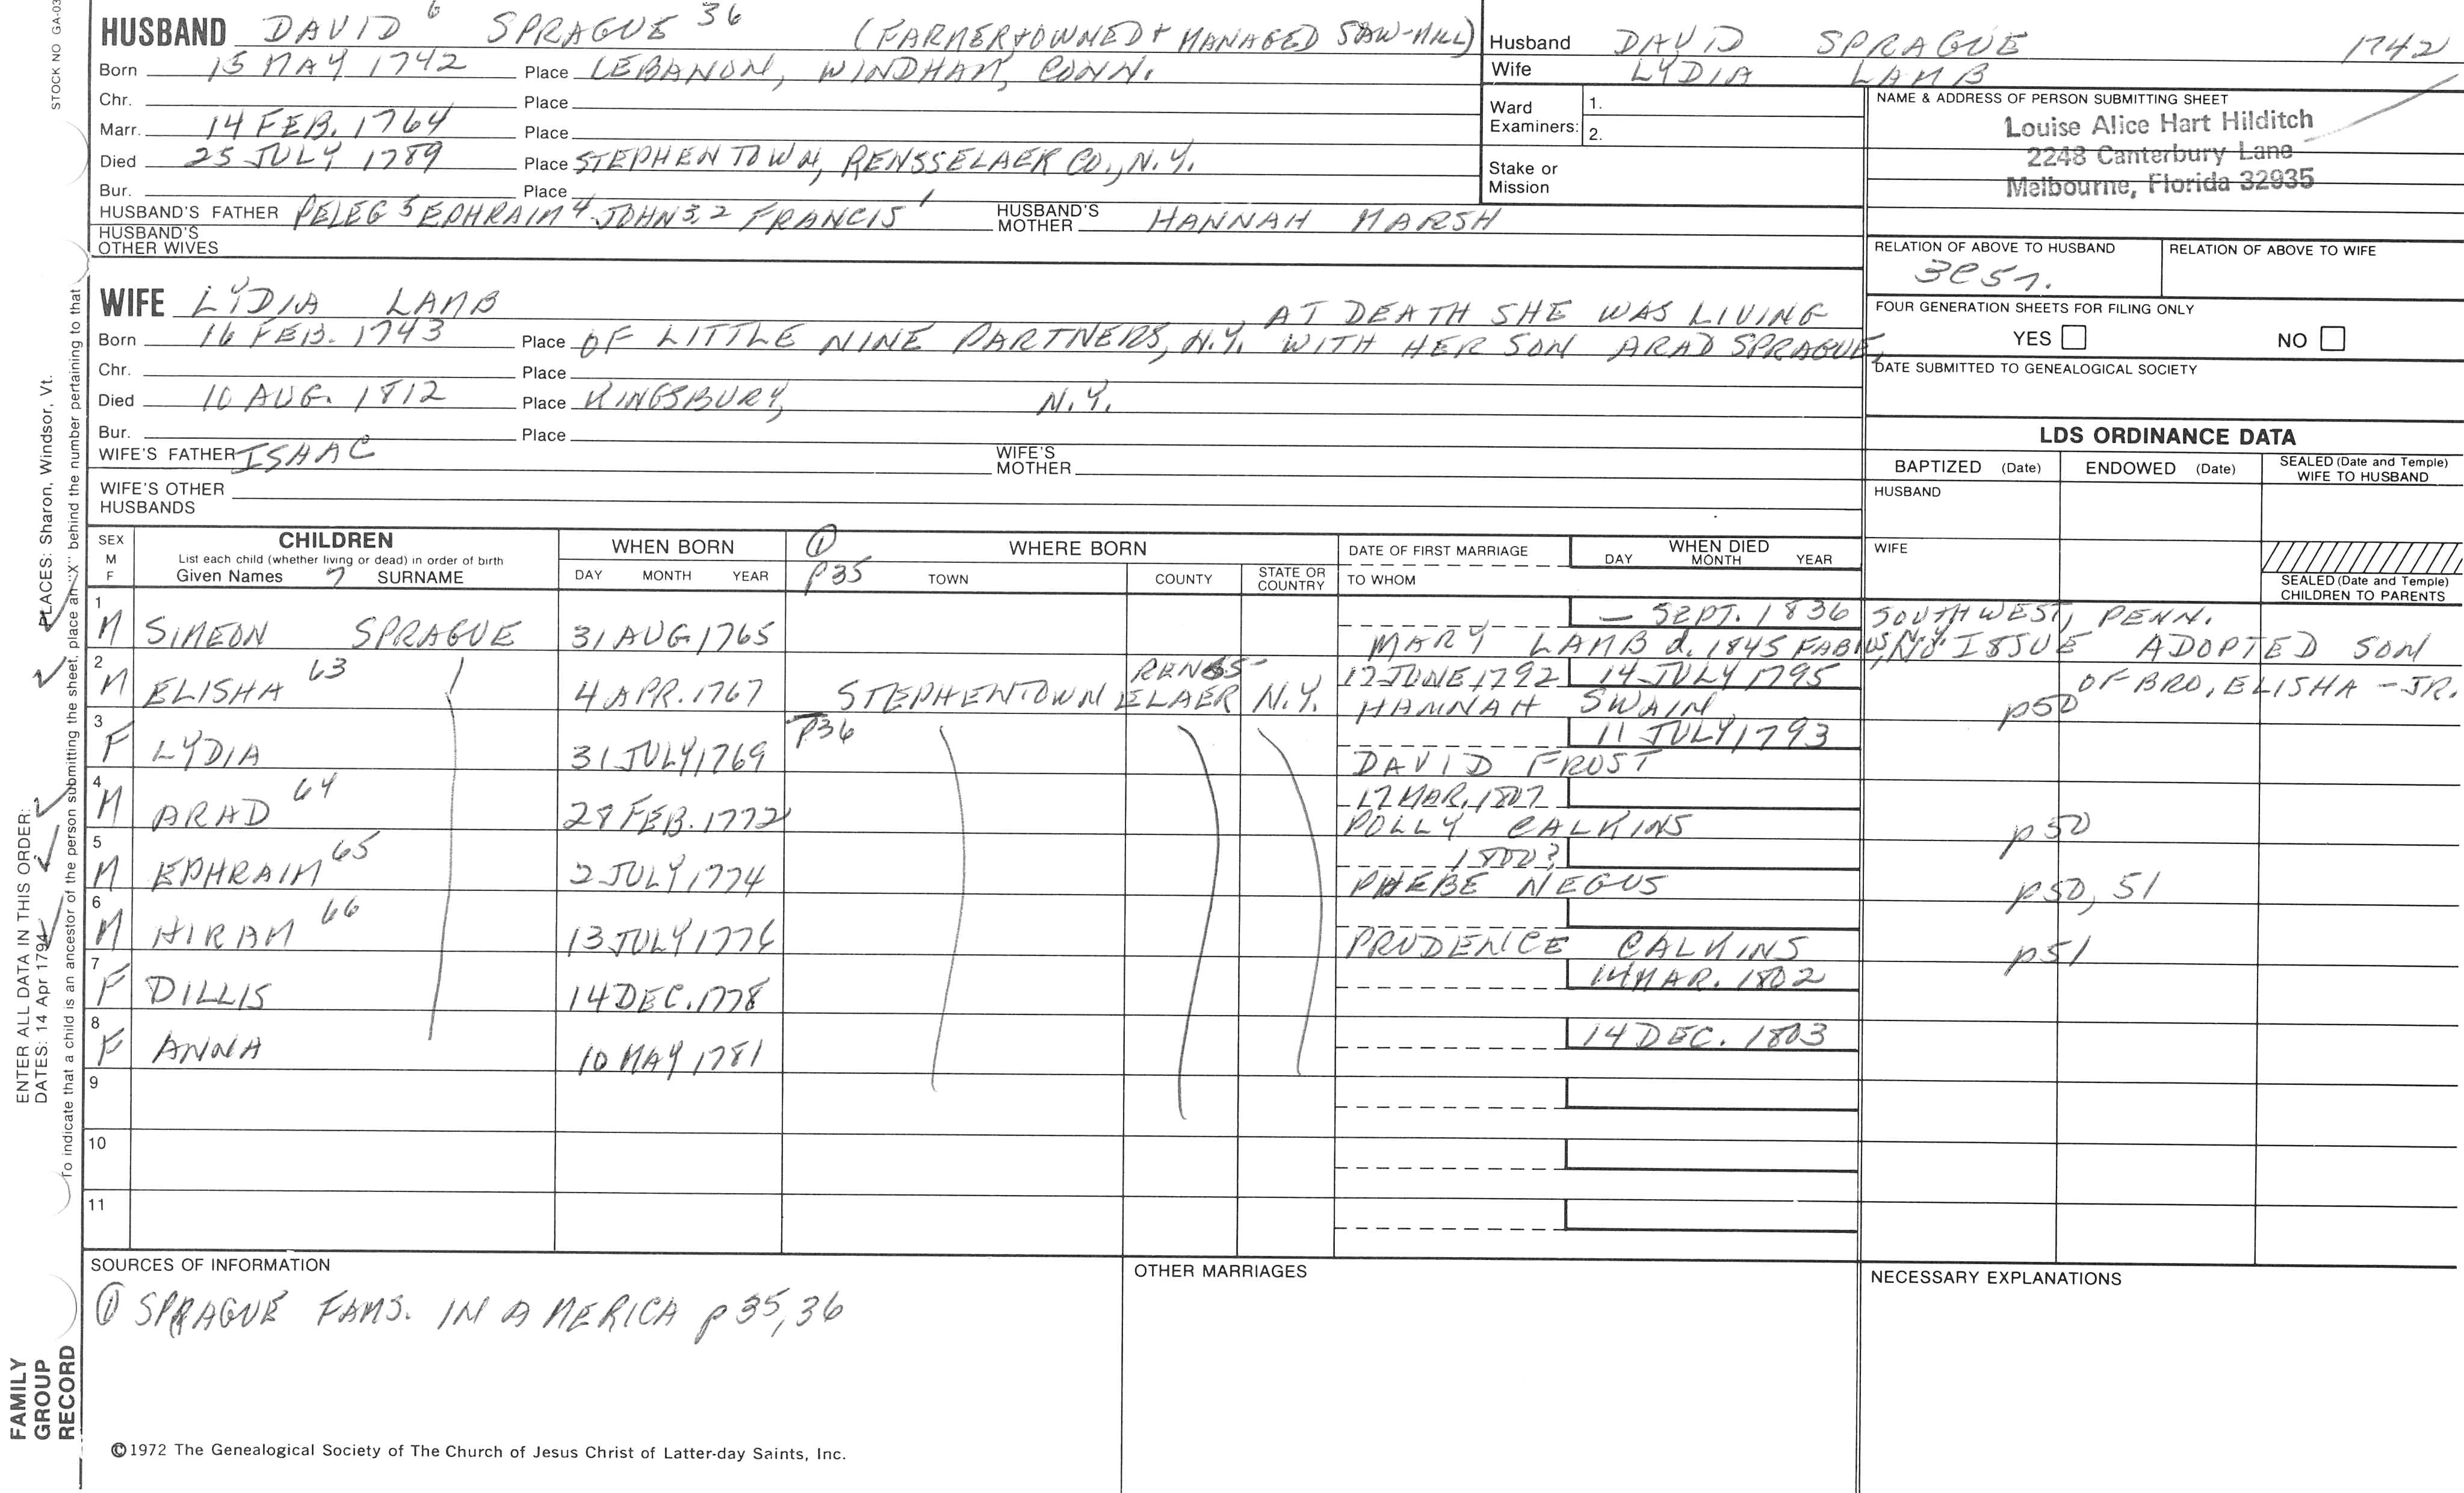 STOCK NO GA-03
HUSBAND DAVID 6 SPRAGUE 36 (FARMER + OWNED + MANAGED SAW-MILL)
Born 15 MAY 1742 Place LEBANON, WINDHAM, CONN.
Chr. Place
Marr. 14 FEB. 1764 Place
Died 25 JULY 1789 Place STEPHENTOWN, RENSSELAER CO., N.Y.
Bur. Place
HUSBAND'S FATHER PELEG 5 EPHRAIM 4 JOHN 3, 2 FRANCIS 1 HUSBAND'S MOTHER HANNAH MARSH
HUSBAND'S OTHER WIVES
Husband DAVID SPRAGUE 1742
Wife LYDIA LAMB
Ward Examiners: 1.
2.
Stake or Mission
NAME & ADDRESS OF PERSON SUBMITTING SHEET
Louise Alice Hart Hilditch
2248 Canterbury Lane
Melbourne, Florida 32935
RELATION OF ABOVE TO HUSBAND RELATION OF ABOVE TO WIFE
FOUR GENERATION SHEETS FOR FILING ONLY
YES NO
DATE SUBMITTED TO GENEALOGICAL SOCIETY
WIFE LYDIA LAMB AT DEATH SHE WAS LIVING
Born 16 FEB. 1743 Place OF LITTLE NINE PARTNERS, N.Y. WITH HER SON ARAD SPRAGUE,
Chr. Place
Died 10 AUG. 1812 Place KINGSBURY, N.Y.
Bur. Place
WIFE'S FATHER ISAAC WIFE'S MOTHER
WIFE'S OTHER HUSBANDS
LDS ORDINANCE DATA
BAPTIZED (Date) ENDOWED (Date) SEALED (Date and Temple) WIFE TO HUSBAND
HUSBAND
WIFE
SEALED (Date and Temple) CHILDREN TO PARENTS
SEX M F CHILDREN WHEN BORN ① WHERE BORN DATE OF FIRST MARRIAGE WHEN DIED
List each child (whether living or dead) in order of birth
Given Names 7 SURNAME DAY MONTH YEAR p35 TOWN COUNTY STATE OR COUNTRY TO WHOM DAY MONTH YEAR
1 M SIMEON SPRAGUE 31 AUG 1765 — SEPT. 1836 SOUTHWEST, PENN.
MARY LAMB d. 1845 FABIUS, N.Y. NO ISSUE ADOPTED SON
OF BRO, ELISHA - JR.
2 M ELISHA 63 4 APR. 1767 STEPHENTOWN RENSS-ELAER N.Y. 17 JUNE, 1792 14 JULY 1795
HANNAH SWAIN p50
3 F LYDIA 31 JULY, 1769 p36 11 JULY, 1793
DAVID FROST
4 M ARAD 64 28 FEB. 1772 17 MAR, 1807
POLLY CALKINS p50
5 M EPHRAIM 65 2 JULY, 1774 1800?
PHEBE NEGUS p50, 51
6 M HIRAM 66 13 JULY 1776
PRUDENCE CALKINS p51
7 F DILLIS 14 DEC. 1778 14 MAR. 1802
8 F ANNA 10 MAY 1781 14 DEC. 1803
9
10
11
SOURCES OF INFORMATION
① SPRAGUE FAMS. IN AMERICA p 35, 36
OTHER MARRIAGES
NECESSARY EXPLANATIONS
©1972 The Genealogical Society of The Church of Jesus Christ of Latter-day Saints, Inc.
FAMILY
GROUP
RECORD
ENTER ALL DATA IN THIS ORDER:
DATES: 14 Apr 1794 PLACES: Sharon, Windsor, Vt.
To indicate that a child is an ancestor of the person submitting the sheet, place an "X" behind the number pertaining to that